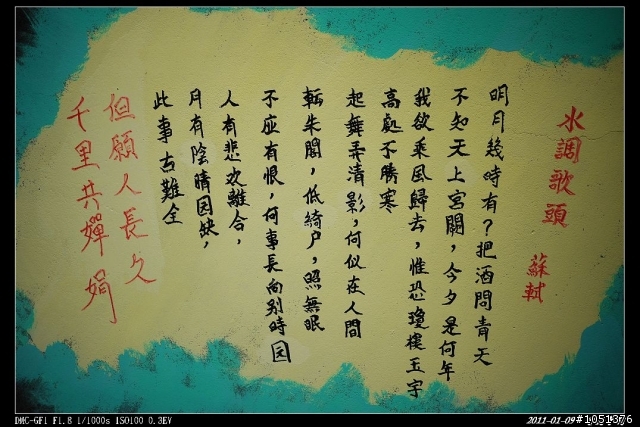 水調歌頭
蘇軾
明月幾時有？把酒問青天
不知天上宮闕，今夕是何年
我欲乘風歸去，惟恐瓊樓玉宇
高處不勝寒
起舞弄清影，何似在人間
転朱閣，低綺户，照無眠
不应有恨，何事長向别時圆
人有悲欢離合，
月有陰晴圆缺，
此事古難全
但願人長久
千里共嬋娟
DMC-GF1 F1.8 1/1000s ISO100 0.3EV
2011-01-09
#1051376